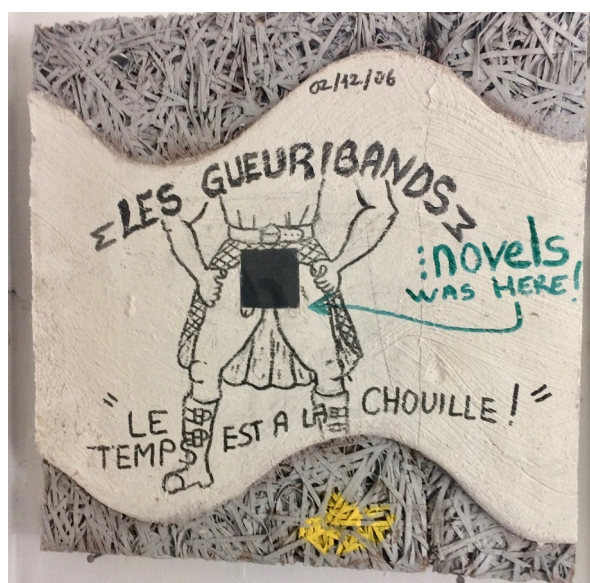 02/12/06
LES GUEURIBANDS
:novels
WAS HERE!
"LE TEMPS EST A LA CHOUILLE!"